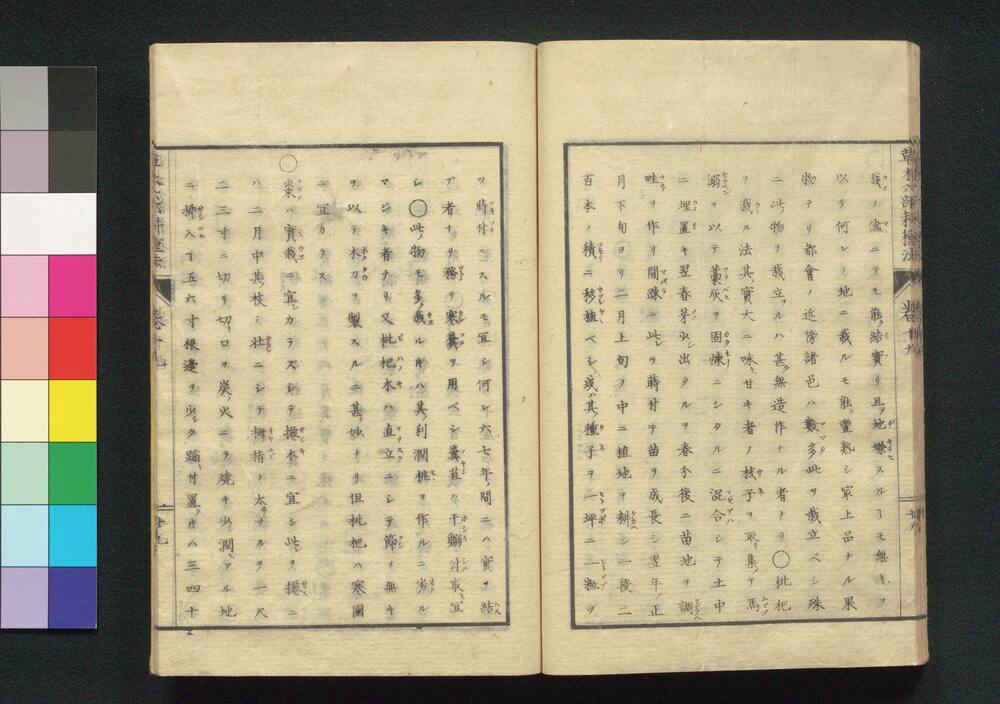 栽ノ儘ニテモ能ク結實リ且地嫌スルヿモ無キヲ
以テ何レノ地ニ栽ルモ能ク豐熟シ寔上品ナル果
物ナリ都會ノ近傍諸邑ハ數多此ヲ栽立ベシ殊
ニ此ノ物ヲ栽立ツルハ甚無造作ナル者ナリ○枇杷
ヲ栽ル法其實大ニ味ヒ甘キ者ノ核子ヲ取リ集テ馬
溺ヲ以テ藁灰ヲ固煉ニシタルニ混合シテ土中
ニ埋置キ翌春芽少シ出タルヲ春分後ニ苗地ヲ調ヘ
畦ヲ作リ間踈ニ此ヲ蒔付テ苗ヲ成長シ翌年ノ正
月下旬ヨリ二月上旬ノ中ニ植地ヲ耕シ一段二
百本ノ積ニ移シ植ベシ或ハ其ノ種子ヲ一坪ニ二粒ヅ
ツ蒔付ニスルモ宜シ何レ六七年ノ間ニハ實ヲ結
ブ者ナリ務テ寒糞ヲ用ベシ糞苴ハ干鰯汁最モ宜
シ○此ノ物モ多ク栽ルキハ其ノ利潤桃ヲ作ルニ劣ル
マジキ者ナリ又枇杷木ハ直立ニシテ節ノ無キ
ヲ以テ木刀ヲ製スルニ甚妙ナリ但枇杷ハ寒國
ニ宜カラズ
○棗ハ實栽ニ宜シカラズシテ揷木ニ宜シ此ヲ揷ニ
ハ二月中其ノ枝ノ壮ニシテ拇指ノ太サナルヲ一尺
二三寸ニ切リ切口ヲ炭火ニテ焼キ少シ潤ヒアル地
ニ揷入テ五六寸根邊ヲ少シク踊付置キハ三四十
草木六部耕種法
卷十九
十九